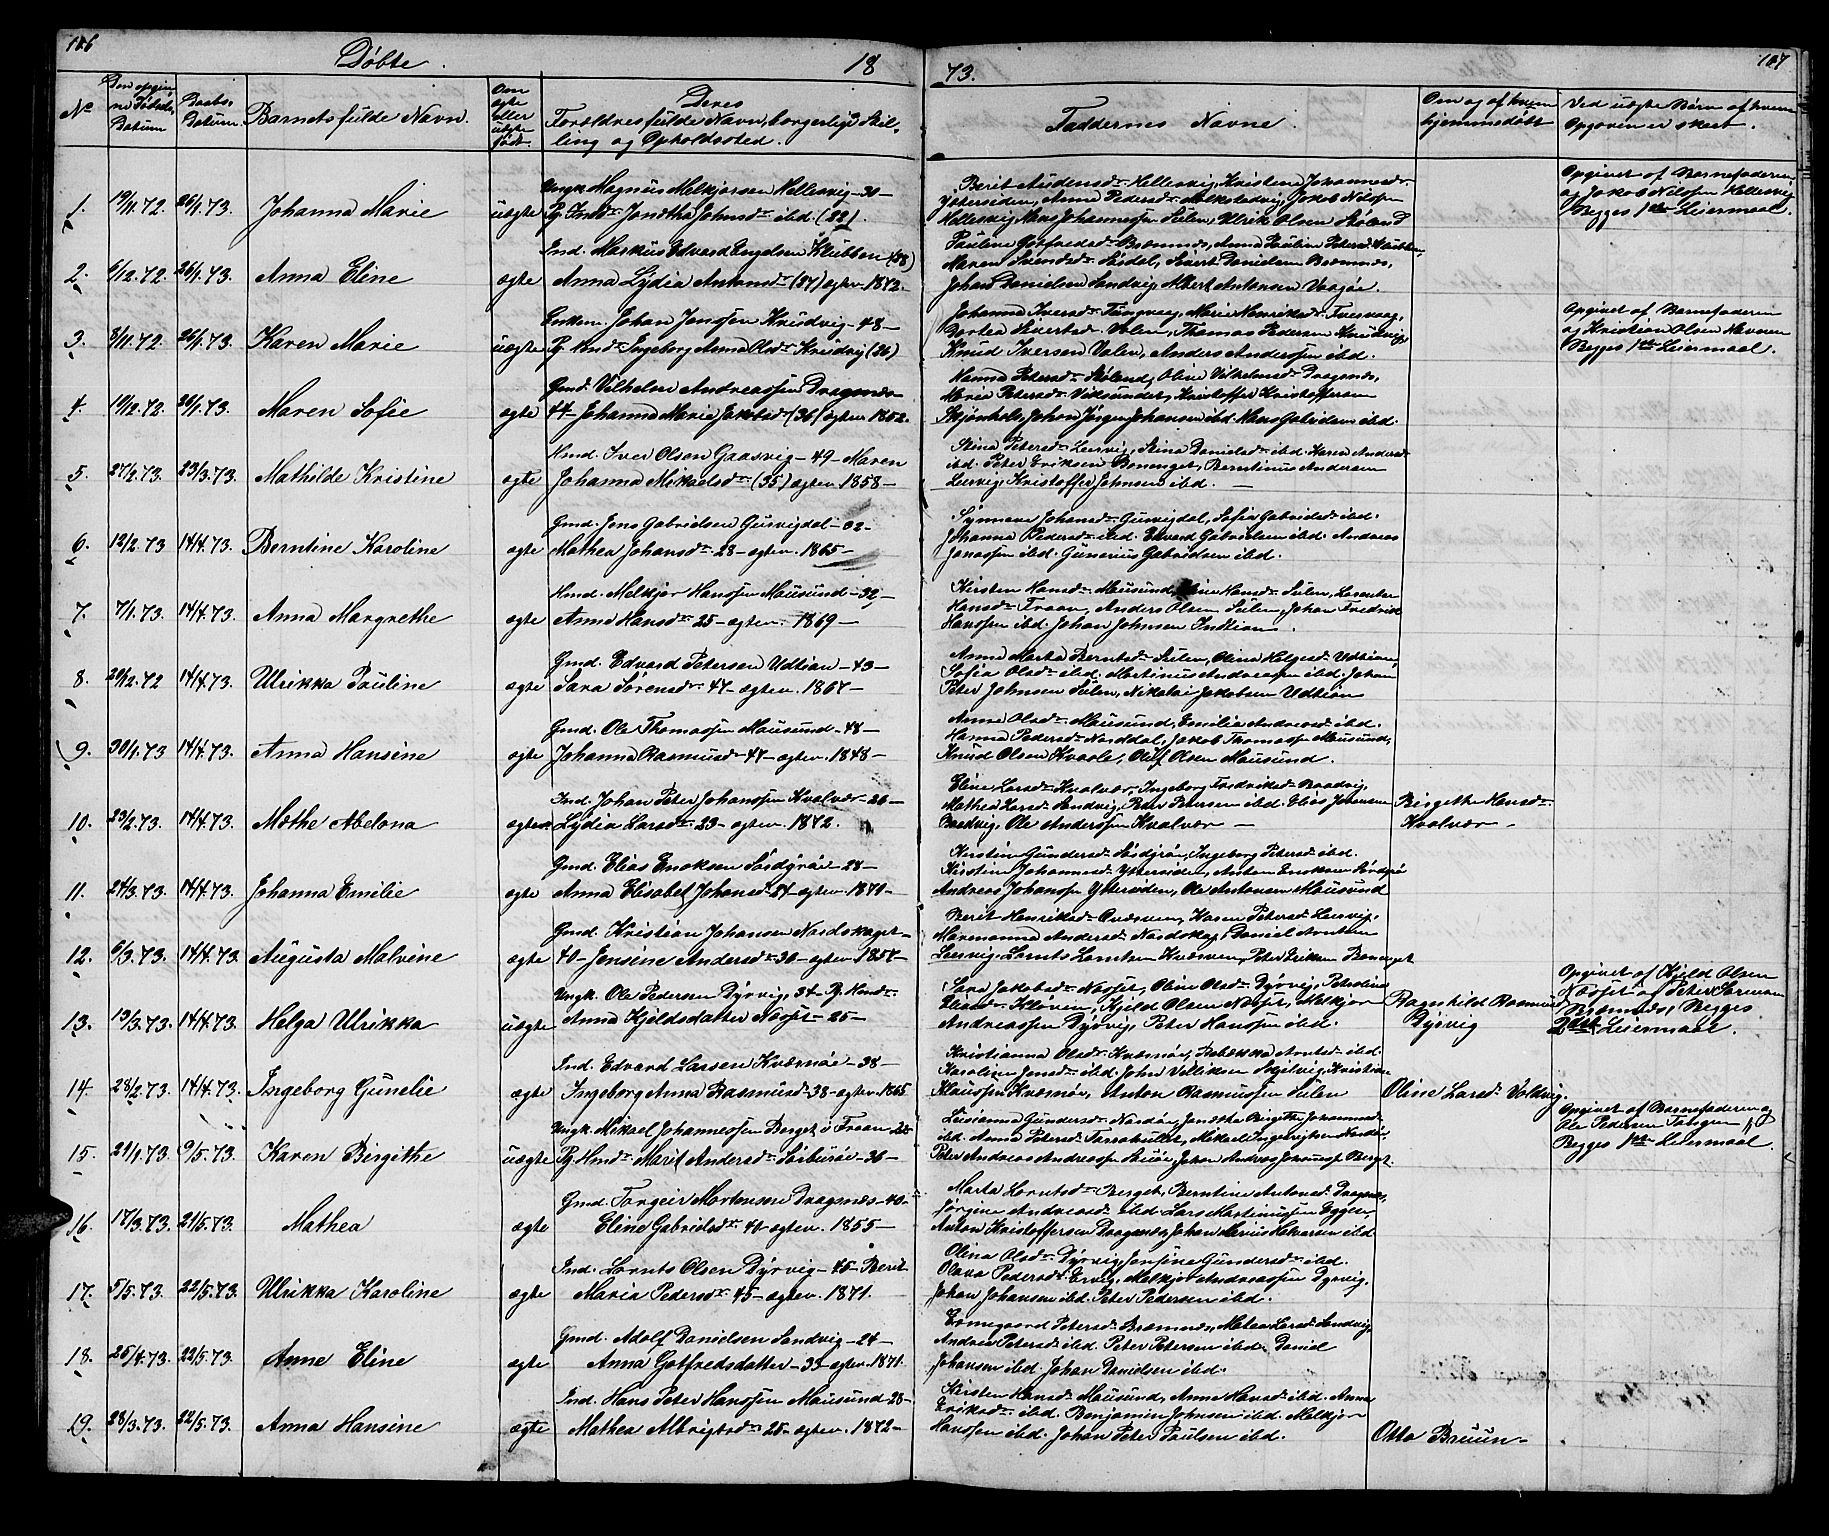 116
Døbte.
18
73.
117
No
Den opgivne Fødsels Datum
Daabs Datum
Barnets fulde Navn.
Om ægte eller uægte født.
Deres
Forældres fulde Navn, borgerlige Stilling og Opholdssted.
Faddernes Navne.
Om og af hvem hjemmedøbt
Ved uægte Børn af hvem Opgaven er skeet.
1. 19/11.72. 26/1.73. Johanna Marie uægte
Ungk. Magnus Melkjorsen Hellesvig - 30 -
Pg. Ind. Jonetha Johnsdr ibd. (22).
Berit Audensdr Hellesvig, Kristine Johannesdr
Yttersiden, Anna Pedersdr, Jakob Nilssen
Hellesvig, Hans Johannessen Sulen, Ulrik Olsen
Opgivet af Barnefaderen
og Jakob Nilssen Hellesvig
Begges 1ste Leiermaal.
2. 6/12.72. 26/1.73. Anna Eline ægte
Ind. Markus Edvard Engelsen Klubben (28)
Anna Lydia Antonsdr (27) ægtev. 1872.
Pauline Gotfredsdr Bræmnæs, Anna Pauline Pedersdr Klubben,
Maren Svendsdr, Sivert Danielsen Bræmnæs,
Johan Danielsen Sandvig, Albert Antonsen Vaagøe.
3. 8/11.72. 26/1.73. Karen Marie uægte
Enkem. Johan Jenssen Knudvig - 48 -
Pg. Ind. Ingeborg Anna Olsdr Knudvig (26)
Johanna Iversdr, Marie Henriksdr
Valen, Thomas Pedersen Knudvig,
Knud Iversen Valen, Anders Anderssen ibd.
Opgivet af Barnefaderen
og Kristian Olsen
Begges 1ste Leiermaal.
4. 10/12.72. 26/1.73. Maren Sofie ægte
Gmd. Vilhelm Andreassen Dragsnæs
44 - Johanna Maria Jakobsdr (36) ægtev. 1852.
Hanna Petersdr, Oline Vilhelmsdr Dragsnæs,
Maria Petersdr Viksundet, Kristoffer Kristoffersen
Johan Jørgen Johansen ibd. Hans Gabrielsen ibd.
5. 27/2.73. 23/3.73. Mathilde Kristine ægte
Hmd. Iver Olsen Gaasvig - 49 - Maren
Johanna Mikaelsdr (35) ægtev. 1858 -
Stina Petersdr Leirvig, Stina Danielsdr ibd. Karen Andersdr
ibd. Peter Eriksen Bonenget, Berntinus Andersen
Leirvig, Kristoffer Johnsen ibd. -
6. 12/2.73 14/4.73. Berntine Karoline ægte
Gmd. Jens Gabrielsen Gurvigdal - 32 -
Mathea Johansdr - 28 - ægtev. 1865 -
Synneve Johansdr Gurvigdal, Sofia Gabrielsdr ibd.
Johanna Pedersdr ibd. Edvard Gabrielsen ibd. Andreas
Jonassen ibd. Gunerius Gabrielsen ibd.
7. 7/1.73. 14/4.73. Anna Margrethe ægte
Hmd. Melkjor Hanssen Mausund - 32 -
Anne Hansdr 25 - ægtev. 1869 -
Kirsten Hansdr Mausund, Hansdr Sulen,
Hansdr Froan, Anders Olsen Sulen, Johan Fredrik
Hanssen ibd. Johan Johnsen Indtian.
8. 20/12.72 14/4.73. Ulrikka Pauline ægte
Gmd. Edvard Petersen Udtian - 43 -
Sara Sørensdr 47 - ægtev. 1867 -
Anna Marta Berntsdr Sulen, Olina Helgesdr Udtian,
Sofia Olsdr ibd. Martinus Andreassen ibd. Johan
Peter Johnsen Sulen, Nikolai Jakobsen Udtian
9. 30/1.73 14/4.73. Anna Hansine ægte
Gmd. Ole Thomassen Mausund - 48 -
Johanna Rasmusdr 47 - ægtev. 1848 -
Anne Olsdr Mausund, Emilie Andreasdr ibd.
Hanna Pedersdr Norddal, Jakob Thomassen Mausund,
Knud Olsen, Oluf Olsen Mausund.
10. 23/2.73. 14/4.73. Mæthe Abelona ægte
Ind. Johan Peter Johanssen Kvalvær - 26 -
Lydia Larsdr 23 - ægtev. 1872.
Eline Larsdr Kvalvær, Ingeborg Fredriksdr Baadvig,
Mathea Larsdr Sandvig, Peter Petersen ibd. Elias Jørgensen
Baadvig, Ole Anderssen Kvalvær -
Birgithe Hansdr
Kvalvær -
11. 24/3.73. 14/4.73. Johanna Emilie ægte
Gmd. Elias Enoksen - 28 -
Anna Elisabet Johansdr 24 - ægtev. 1871 -
Kirstine Gundersdr, Ingeborg Petersdr ibd.
Kirstine Johannesdr Yttersiden, Anton Enoksen
Andreas Johanssen Yttersiden, Ole Antonsen Mausund
12. 6/3.73. 14/4.73. Augusta Malvine ægte
Gmd. Kristian Johansen Nordskaget -
40 - Jensine Andersdr - 30 - ægtev. 1857 -
Berit Henriksdr, Karen Petersdr Leirvig,
Marenanna Andersdr Nordskag, Daniel Arntsen
Leirvig, Lornts Lorntsen Kværven, Peter Eriksen Bonenget
13. 19/3.73. 14/4.73. Helga Ulrikka uægte
Ungk. Ole Pedersen Dyrvig, 34 - Pg. Hmd.
Anna Kjeldsdatter Næsset - 25 -
Sara Jakobsdr Næsset, Oline Olsdr Dyrvig, Petrolina
Kjeld Olsen Næsset, Melkjor
Andreassen Dyrvig, Peter Hanssen ibd.
Ragnhild Rasmusdr
Dyrvig
Opgivet af Kjeld Olsen
Næsset og Peter
Bræmnæs, Begges
2det Leiermaal.
14. 28/2.73. 14/4.73. Ingeborg Gunelie ægte
Ind. Edvard Larsen Kværnøe - 38 -
Ingeborg Anna Rasmusdr - 38 - ægtev. 1865
Kristianna Olsdr Kværnøe, Rebækka Arntsdr ibd.
Karoline Jonsdr ibd. John Velliksen, Kristian
Klaussen Kværnøe, Anton Rasmussen Sulen
Oline Larsdr Voldvig.
15. 21/1.73. 9/5.73. Karen Birgithe uægte
Ungk. Mikael Johannessen Berget i Froan 25
Pg. Hmd. Marit Andersdr Sørburøe - 36 -
Lusianna Gundersdr Nordøe, Jonetha Birgithe Johannesdr
ibd. Anna Petersdr, Mikael Ingebrigtsen Nordøe,
Peter Andreas Andreassen, Johan Andreas Johannessen Berget.
Opgivet af Barnefaderen og
Ole Pedersen
Begges 1ste Leiermaal.
16. 17/3.73. 21/5.73. Mathea ægte
Gmd. Torgeir Mortensen Dragsnæs - 40 -
Eline Gabrielsdr 41 - ægtev. 1855 -
Marta Lorntsdr Berget, Berntine Antonsdr Dragsnæs,
Jørgine Andreasdr ibd. Lars Martinussen
Anton Kristoffersen Dragsnæs, Johan Marius Halvorsen ibd.
17. 5/5.73. 22/5.73. Ulrikka Karoline ægte
Ind. Lornts Olsen Dyrvig - 45 - Berit
Maria Pedersdr 45 - ægtev. 1871.
Olina Olsdr Dyrvig, Jensine Gundersdr ibd.
Olava Pedersdr Ervig, Melkjor Andreassen Dyrvig,
Johan Johansen ibd. Peter Pedersen ibd.
18. 25/4.73. 22/5.73. Anne Eline ægte
Gmd. Adolf Danielsen Sandvig - 24 -
Anna Gotfredsdatter - 33 - ægtev. 1871.
Ermegaard Petersdr Bræmnæs, Malea Larsdr Sandvig,
Andrea Petersdr ibd. Peter Petersen ibd. Daniel
Johansen ibd. Johan Danielsen ibd.
19. 28/3.73. 22/5.73. Anna Hansine ægte
Ind. Hans Peter Hanssen Mausund - 28 -
Mathea Albrigtsdr 25 - ægtev. 1872 -
Kirsten Hansdr Mausund, Anne Hansdr ibd. Anna
Eriksdr ibd. Benjamin Johnsen ibd. Melkjor
Hanssen ibd. Johan Peter Paulsen ibd.
Otto Bruun -